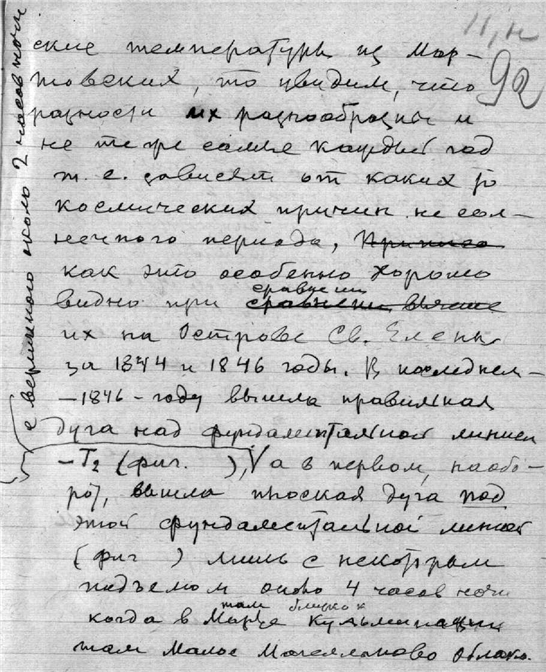 11, н
92
ские температуры из мар-
товских, то увидим, что
разности их разнообразны и
не те же самые каждый год
т. е. зависят от каких то
космических причин не сол-
нечного периода,
как это особенно хорошо
сравнении
видно при сравнении
их на Острове Св. Елены
за 1844 и 1846 годы. В последнем-
-1846- году вышла правильная
дуга над фундаментальной линией
-T2 (фиг. ), V а в первом, наобо-
рот, вышла плоская дуга под
этой фундаментальной линией
(фиг ) лишь с некоторым
подъемом около 4 часов ночи
там близко к
когда в Марте кульминации
там Малое Магелланово облако.
с вершиною около 2 часов ночи